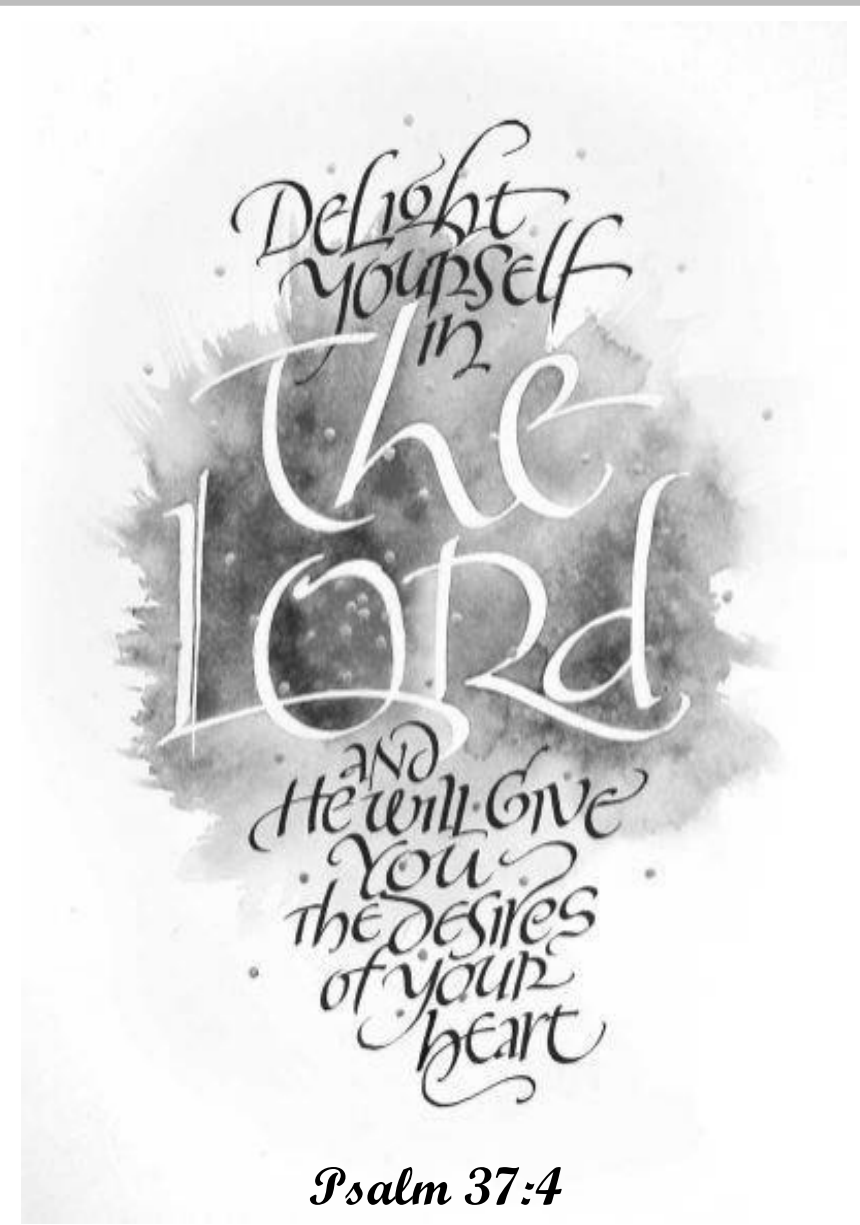 Delight
yourself
in
the
Lord
and
He will Give
you
the desires
of your
heart
Psalm 37:4